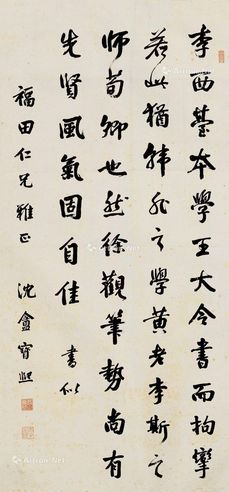 李西臺本學王大令書而拘攣
若此猶韓非之學黃老李斯之
師荀卿也然徐觀筆勢尚有
先賢風氣固自佳 書似
福田仁兄雅正 沈盦寶熙